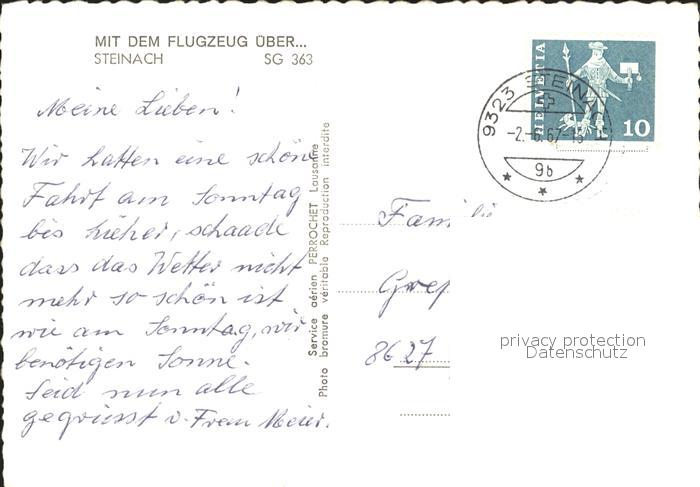 MIT DEM FLUGZEUG ÜBER...
STEINACH SG 363
Meine Lieben!
Wir hatten eine schöne
Fahrt am Sonntag
bis hieher, schaade
dass das Wetter nicht
mehr so schön ist
wie am Sonntag, wir
benötigen Sonne.
Seid nun alle
gegrüsst v. Frau Meier.
Photo Service aérien PERROCHET Lausanne
bromure véritable Reproduction interdite
HELVETIA
10
9323 STEINACH
-2.-6.67-18
9b
Fam
Grep
8627
privacy protection
Datenschutz